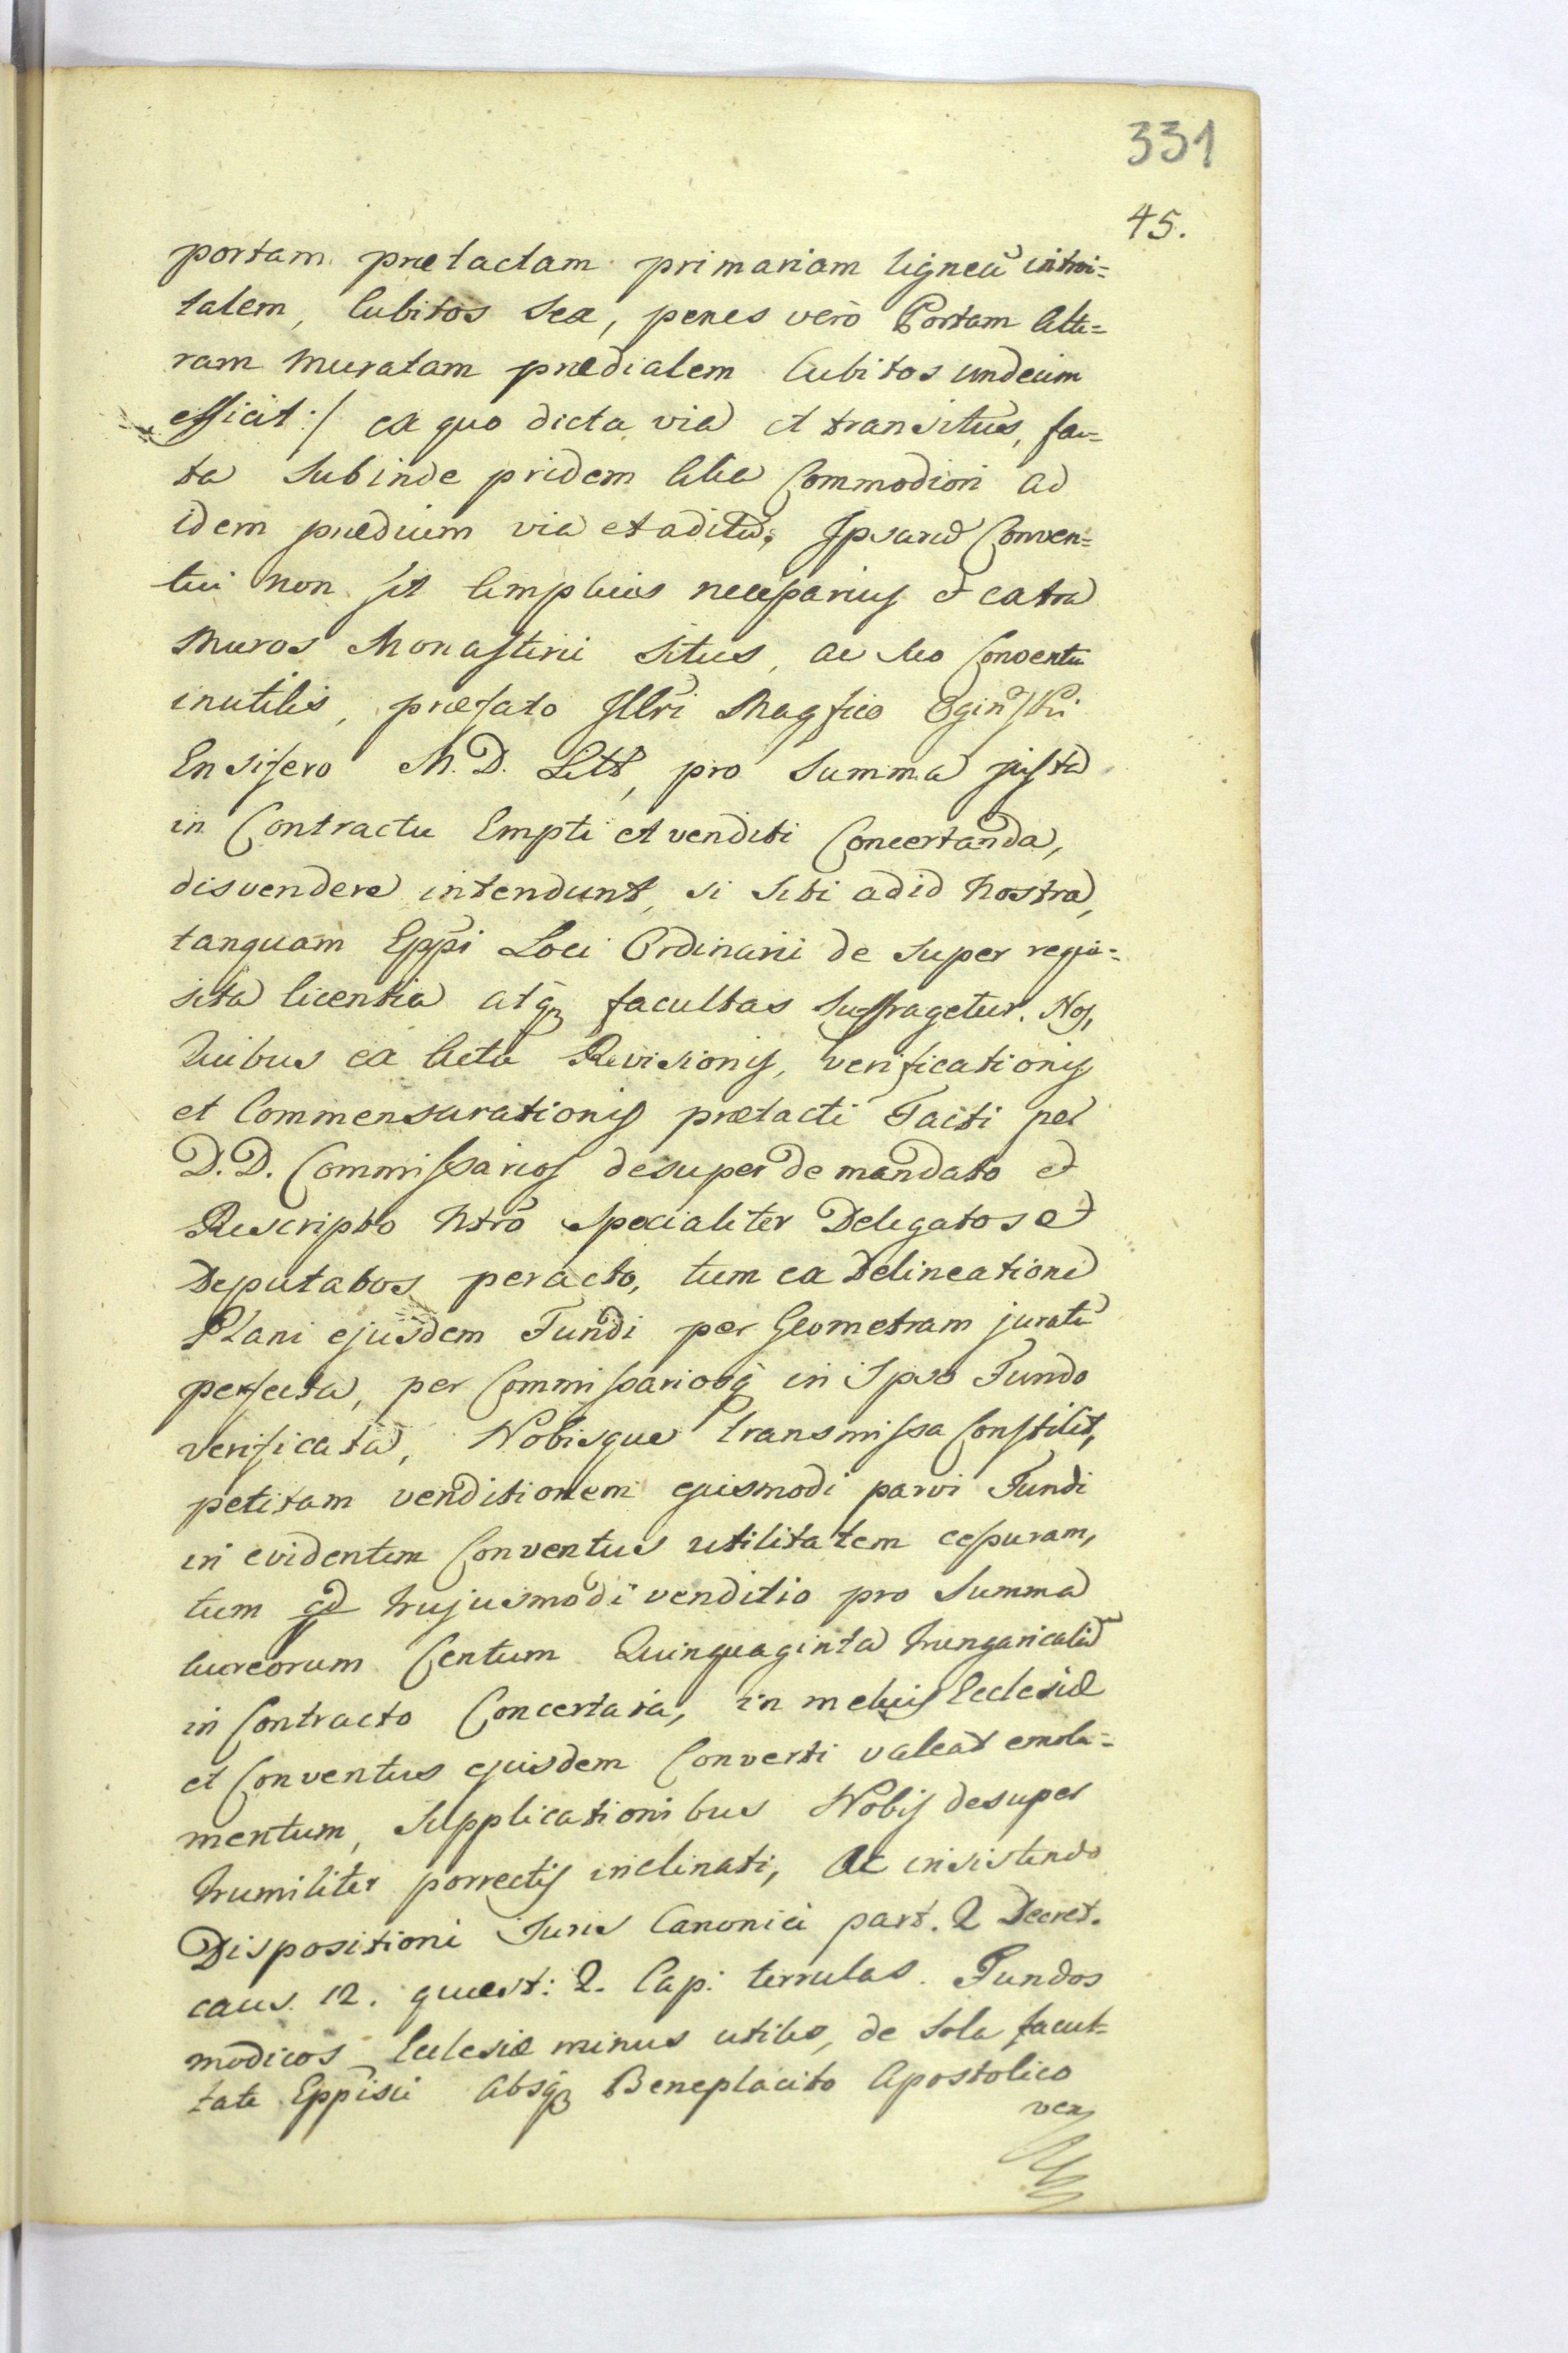 331
45.
portam prætactam primariam ligneã introi=
talem, Cubitos sex, penes verò Portam alte=
ram muratam prædialem Cubitos undecim
efficit :/ ex quo dicta via et transitus, fac=
ta subinde pridem alia Commodiori ad
idem prædium via et aditu, Ipsarũ Conven=
tui non sit amplius necessarius et extra
muros Monasterii situs, ac suo Conventui
inutilis, præfato Illri Magfico Oginski
Ensifero M. D. Litt, pro summa justa
in Contractu Empti et venditi Concertanda,
disvendere intendunt, si sibi ad id Nostra,
tanquam Eppi Loci Ordinarii desuper requi=
sita licentia atq3 facultas suffragetur. Nos,
Quibus ex Actu Revisionis, verificationis
et Commensurationis prætacti Facti per
D. D. Commissarios desuper de mandato et
Rescripto Ntro Specialiter Delegatos et
Deputatos peracto, tum ex Delineatione
Plani ejusdem Fundi per Geometram juratũ
perfecta, per Commissariosq in Ipso Fundo
verificata, Nobisque transmissa Constitit,
petitam venditionem ejusmodi parvi Fundi
in evidentem Conventus utilitatem cessuram,
tum qd hujusmodi venditio pro Summa
Aureorum Centum Quinquaginta hungaricaliũ
in Contracto Concertata, in melius Ecclesiæ
et Conventus ejusdem Converti valeat emolu=
mentum, Supplicationibus Nobis desuper
humiliter porrectis inclinati, Ac insistendo
Dispositioni Juris Canonici part. 2 Decret.
caus. 12. quæst: 2. Cap: terrulas. Fundos
modicos Ecclesiæ minus utiles, de sola facul=
tate Eppisci Absq3 Beneplacito Apostolico
ven